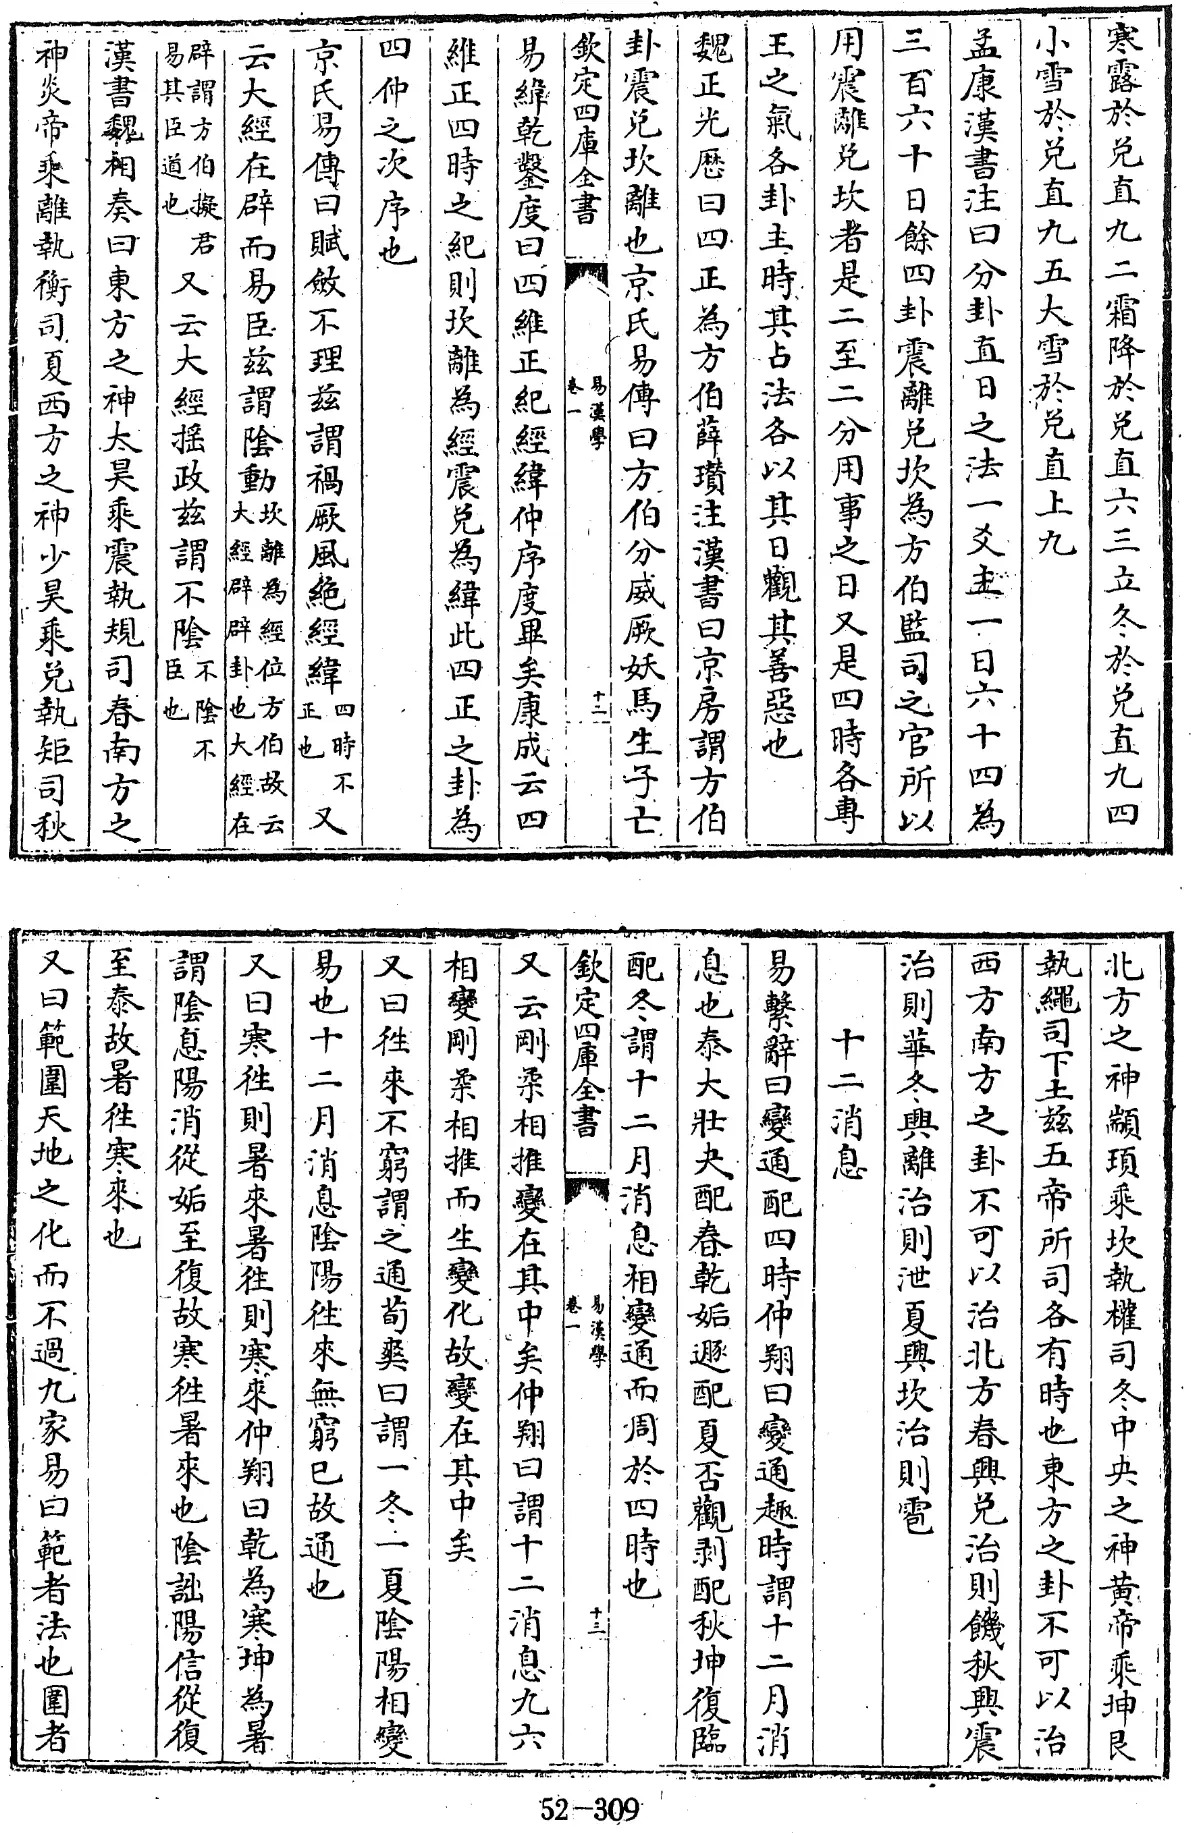 寒露於兑直九二霜降於兑直六三立冬於兑直九四
小雪於兑直九五大雪於兑直上九
孟康漢書注曰分卦直日之法一爻主一日六十四為
三百六十日餘四卦震離兑坎為方伯監司之官所以
用震離兑坎者是二至二分用事之日又是四時各專
王之氣各卦主時其占法各以其日觀其善惡也
魏正光歷曰四正為方伯薛瓚注漢書曰京房謂方伯
卦震兑坎離也京氏易傳曰方伯分威厥妖馬生子亡
欽定四庫全書
易漢學
卷一
十二
易緯乾鑿度曰四維正紀經緯仲序度畢矣康成云四
維正四時之紀則坎離為經震兑為緯此四正之卦為
四仲之次序也
京氏易傳曰賦斂不理兹謂禍厥風絶經緯四時不正也又
云大經在辟而易臣兹謂隂動坎離為經位方伯故云大經辟辟卦也大經在
辟謂方伯擬君易其臣道也又云大經揺政兹謂不隂不隂不臣也
漢書魏相奏曰東方之神太昊乘震執規司春南方之
神炎帝乘離執衡司夏西方之神少昊乘兑執矩司秋
北方之神顓頊乘坎執權司冬中央之神黄帝乘坤艮
執繩司下土兹五帝所司各有時也東方之卦不可以治
西方南方之卦不可以治北方春興兑治則饑秋興震
治則華冬興離治則泄夏興坎治則雹
十二消息
易繫辭曰變通配四時仲翔曰變通趣時謂十二月消
息也泰大壯夬配春乾姤遯配夏否觀剥配秋坤復臨
配冬謂十二月消息相變通而周於四時也
欽定四庫全書
易漢學
卷一
十三
又云剛柔相推變在其中矣仲翔曰謂十二消息九六
相變剛柔相推而生變化故變在其中矣
又曰徃來不窮謂之通荀爽曰謂一冬一夏隂陽相變
易也十二月消息隂陽徃來無窮已故通也
又曰寒徃則暑來暑徃則寒來仲翔曰乾為寒坤為暑
謂隂息陽消從姤至復故寒徃暑來也隂詘陽信從復
至泰故暑徃寒來也
又曰範圍天地之化而不過九家易曰範者法也圍者
52-309